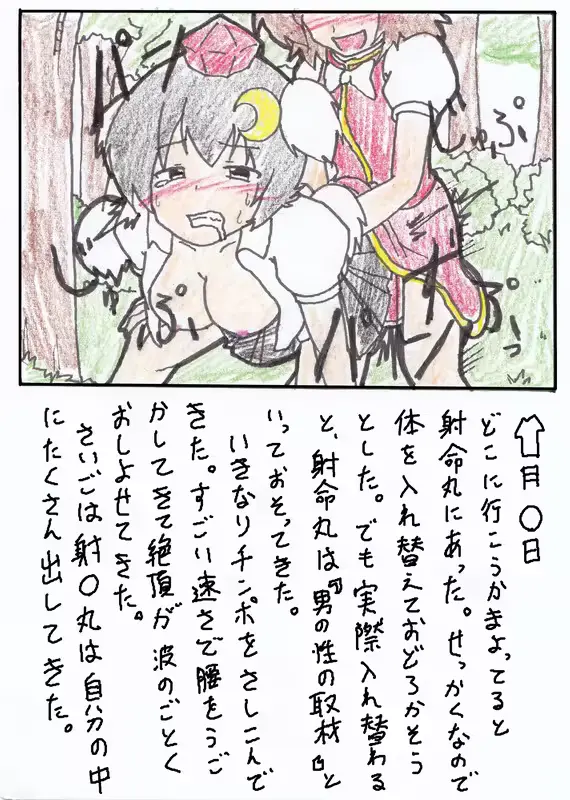 パーン
じゅぷ
じゅぷ
ずぷーっ
⇧月〇日
どこに行こうかまよってると
射命丸にあった。せっかくなので
体を入れ替えておどろかそう
とした。でも実際入れ替わる
と、射命丸は『男の性の取材』と
いっておそってきた。
いきなりチンポをさしこんで
きた。すごい速さで腰をうご
かしてきて絶頂が波のごとく
おしよせてきた。
さいごは射〇丸は自分の中
にたくさん出してきた。